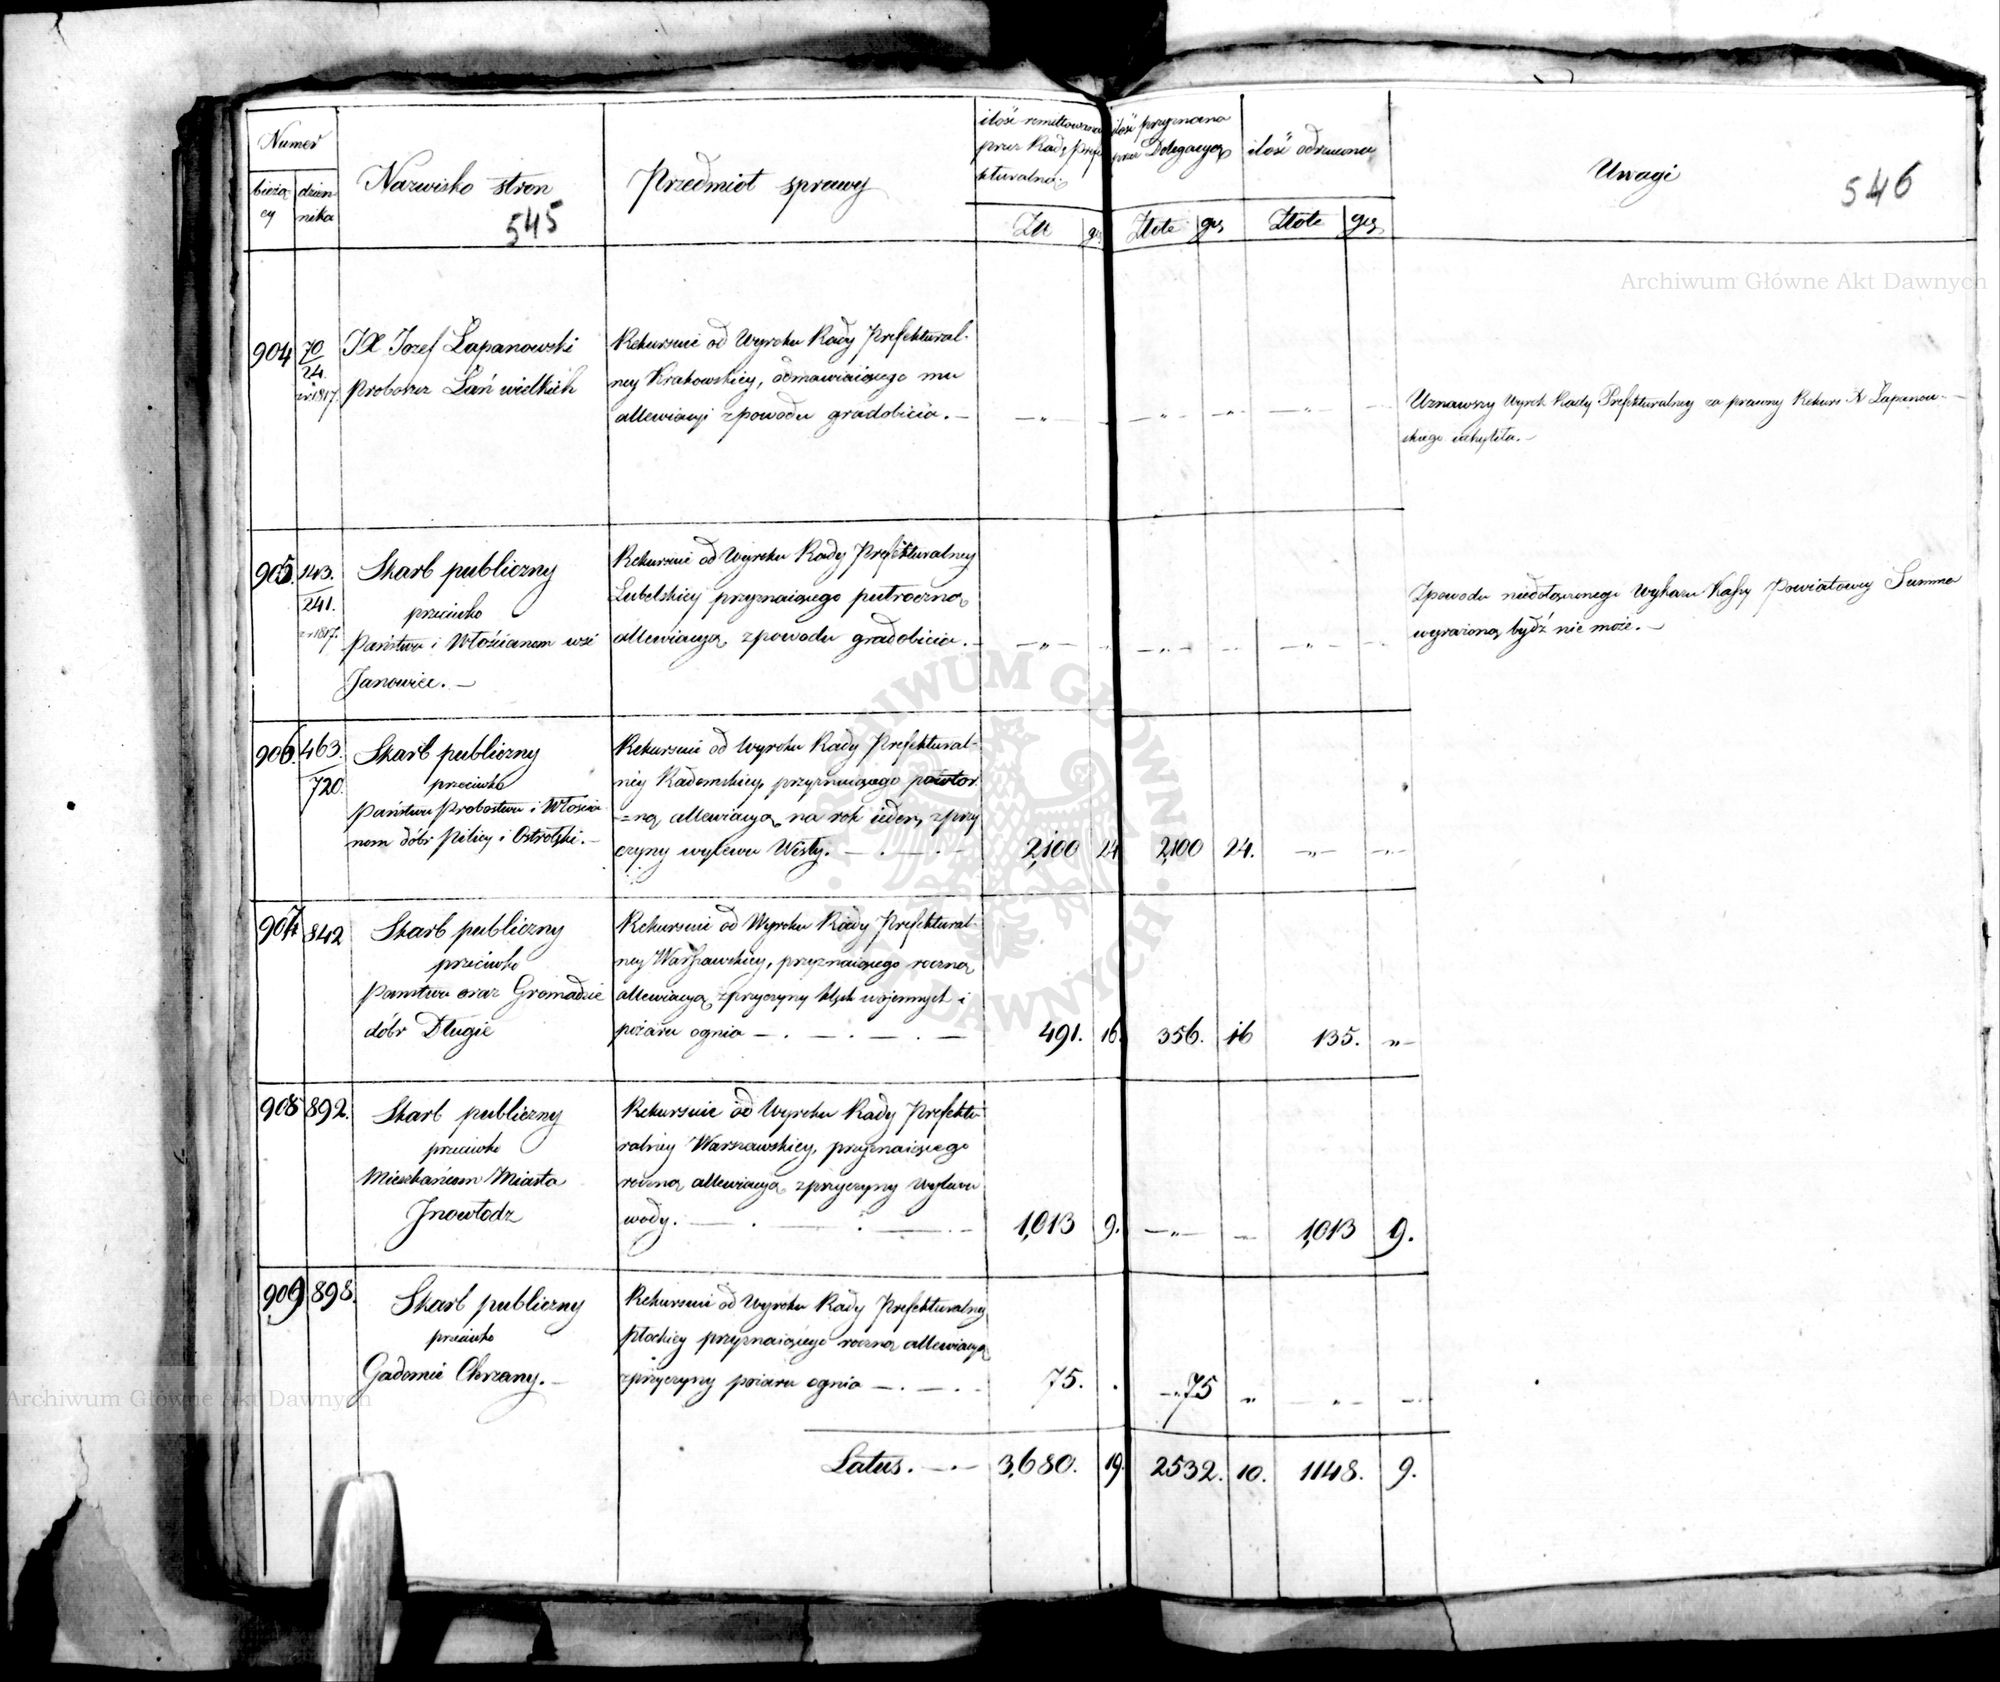 Numer
bieżą
cy
dzien
nika
Nazwisko stron
545
Przedmiot sprawy
ilość remittowana
przez Radę Prefe
kturalną.
Złł
gr
ilość przyznana
przez Delegacyą
Złote
gr,
ilość odrzucona
Złote
gr,
Uwagi
546
Archiwum Główne Akt Dawnych
904
70
24.
z r 1817.
JX Jozef Łapanowski
Proboszcz Łań wielkich
Rekursuie od Wyroku Rady Prefektural-
ney Krakowskiey, odmawiaiącego mu
allewiacyi z powodu gradobicia. —
Uznawszy Wyrok Rady Prefekturalney za prawny Rekurs X Łapanow-
skiego uchyliła. —
905.
143.
241.
z r 1817.
Skarb publiczny
przeciwko
Państwu i Włościanom wsi
Janowice. —
Rekursuie od Wyroku Rady Prefekturalney
Lubelskiey przyznaiącego półroczną
allewiacyą, z powodu gradobicia. —
Z powodu niedołączonego Wykazu Kassy Powiatowey Summa
wyrażoną bydź nie może. —
906.
463.
720.
Skarb publiczny
przeciwko
Państwu Probostwu i Włościa
nom dóbr Pilicy i Ostrołęki. —
Rekursuie od Wyroku Rady Prefektural-
ney Radomskiey, przyznaiącego powtor
=ną allewiacyą, na rok ieden, z przy
czyny wylewu Wisły. — . — . —
2,100
24
2,100
24.
907
842
Skarb publiczny
przeciwko
Państwu oraz Gromadzie
dóbr Długie
Rekursuie od Wyroku Rady Prefektural-
ney Warszawskiey, przyznaiącego roczną
allewiacyą z przyczyny klęsk wojennych i
pożaru ognia — . — . — . —
491.
16.
356.
16
135.
„ —
908
892.
Skarb publiczny
przeciwko
Mieszkańcom Miasta
Jnowłodz
Rekursuie od Wyroku Rady Prefektu-
ralney Warszawskiey, przyznaiącego
roczną allewiacyą z przyczyny wylewu
wody. — . — . —
1,013
9.
1,013
9.
909
898.
Skarb publiczny
przeciwko
Gadomie Chrzany. —
Rekursuie od Wyroku Rady Prefekturalney
Płockiey przyznaiącego roczną allewiacyą
z przyczyny pożaru ognia — . — . —
75.
75
„
Latus. — . —
3,680.
19.
2532.
10.
1148.
9.
ARCHIWUM GŁÓWNE AKT DAWNYCH
Archiwum Główne Akt Dawnych